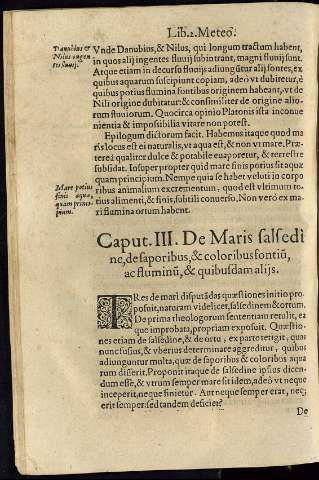 Lib.2. Meteo.
Danubius &
Nilus ingen
tes fluuij.
Vnde Danubius, & Nilus, qui longum tractum habent,
in quos alij ingentes fluuij subintrant, magni fluuij sunt.
Atque etiam in decursu fluuijs adiunguntur alij fontes, ex
quibus aquarum suscipiunt copiam, adeò vt dubitetur, è
quibus potius flumina fontibus originem habeant, vt de
Nili origine dubitatur: & consimiliter de origine alio-
rum fluuiorum. Quocirca opinio Platonis ista inconue
nientia & impossibilia vitare non potest.
Epilogum dictorum facit. Habemus itaque quod ma
ris locus est ei naturalis, vt aqua est, & non vt mare. Præ-
terea qualiter dulce & potabile euaporetur, & terrestre
subsidat. Insuper propter quid mare finis potius sit aquæ
quam principium. Nempe quia se habet veluti in corpo
Mare potius
finis aquæ,
quam princi-
pium.
ribus animalium excrementum, quod est vltimum to-
tius alimenti, & finis, subtili conuerso. Non verò ex ma
ri flumina ortum habent.
Caput. III. De Maris salsedi
ne, de saporibus, & coloribus fontiū,
ac fluminū, & quibusdam alijs.
TRes de mari disputādas quæstiones initio pro-
posuit, naturam videlicet, salsedinem & ortum.
De prima theologorum sententiam retulit, ea
que improbata, propriam exposuit. Quæstio-
nes etiam de salsedine, & de ortu, ex parte tetigit, quas
nunc fusius, & vberius determinare aggreditur, quibus
adiunguntur multa, quæ de saporibus & coloribus aqua
rum differit. Proponit itaque de salsedine ipsius dicen-
dum esse, & vtrum semper mare sit idem, adeò vt neque
inceperit, neque finietur. Aut neque semper erat, nec;
erit semper: sed tandem deficiet?
De